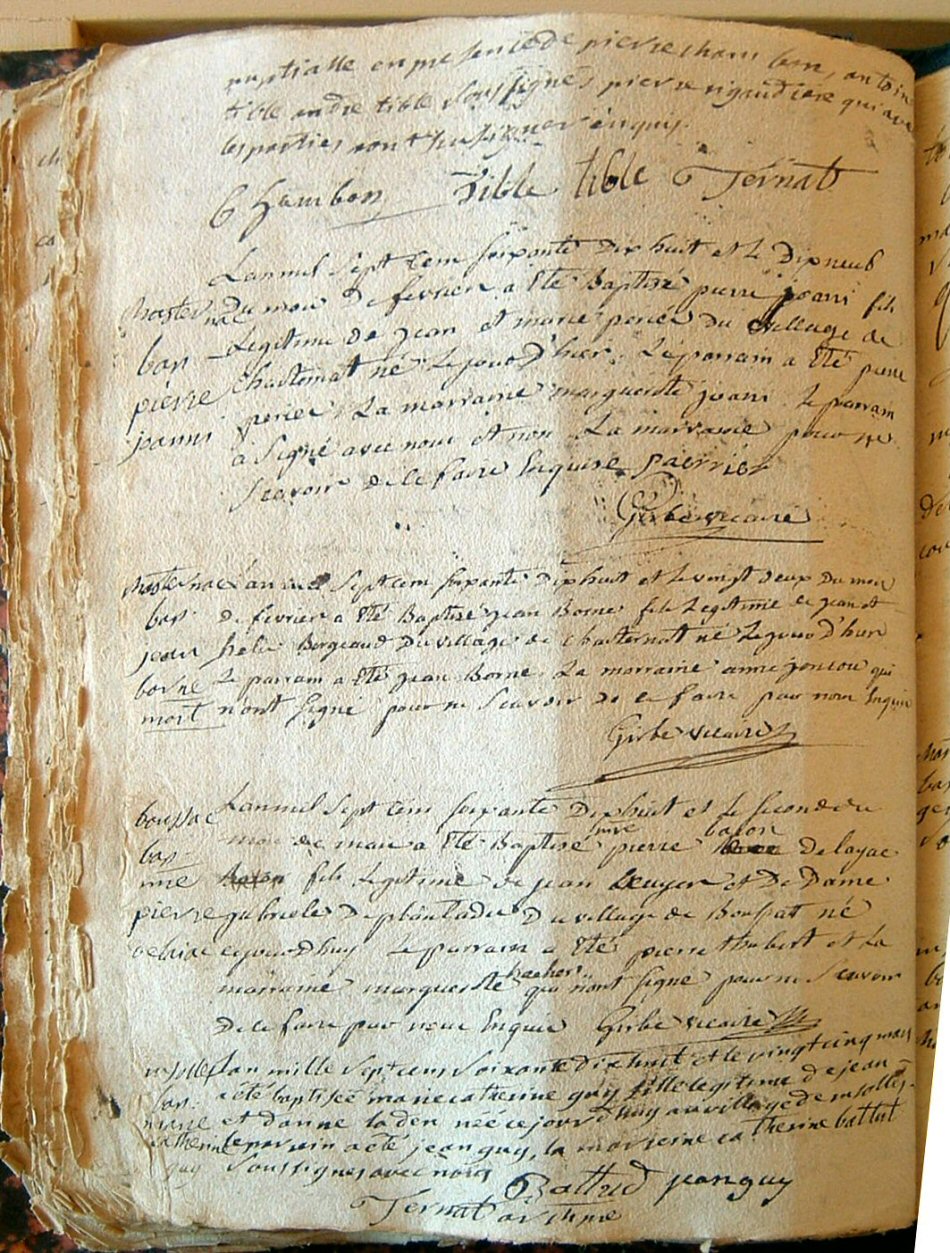 nuptialle en presence de pierre chambon, antoine
tible andre tible soussignés pierre rigaudiere qui avec
les parties nont su signer enquis.
Chambon Tible tible Ternat
Lan mil sept cem soixante dix huit et le dix neuf
Chasternac du mois de fevrier a Eté Baptisé pierre joani fils
bap Legitime de jean et marie perier du village de
pierre chasternat né le jour d'hier. Le parrain a Eté pierre
joanni perier. La marraine marguerite joani Le parrain
a signé avec nous et non La marraine pour ne
scavoir de le faire Enquise paerrier
Girbe vicaire
Chasternac Lan mil sept cem soixante dix huit et le vingt deux du mois
bap de fevrier a Eté Baptisé jean Borne fils Legitime de jean et
jean helis Bergeaud du village de chasternat né Le jour d'hier
borne Le parrain a Eté jean Borne La marraine anne joucou qui
mort n'ont signé pour ne scavoir de ce faire par nous Enquis
Girbe vicaire
boussac Lan mil sept cem soixante dix huit et le second du
bap mois de mai a Eté Baptisé pierre baron de layac
fils Legitime de jean Ecuyer et De Dame
pierre gabriele De plantadis du village de Boussat né
cejourdhuy Le parrain a Eté pierre thubert et La
marraine marguerite qui n'ont signé pour ne scavoir
De le faire par nous Enquis Girbe vicaire
Lan mille sept cens soixante dix huit et le vingt cinq mars
bap. a été baptisée marie catherine guy fille legitime de jean
marie et d'anne laden née ce jourdhuy au village de
catherine le parrain a été jean guy, la marraine catherine battut
guy soussignes avec nous
Battud jean guy
Ternat